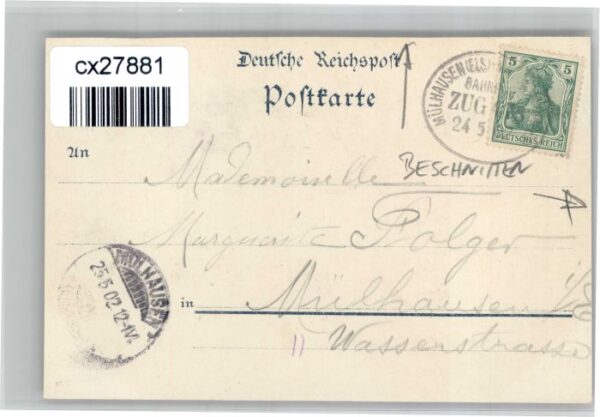 cx27881
Deutsche Reichspost
Postkarte
MÜLHAUSEN (ELS)
BAHN
ZUG
24 5
5 5
DEUTSCHES REICH
BESCHNITTEN
An
Mademoiselle
Marguerite Bolger
in Mülhausen i/E
Wasserstrasse
11
MÜLHAUSEN
25.5.02.12-1V.